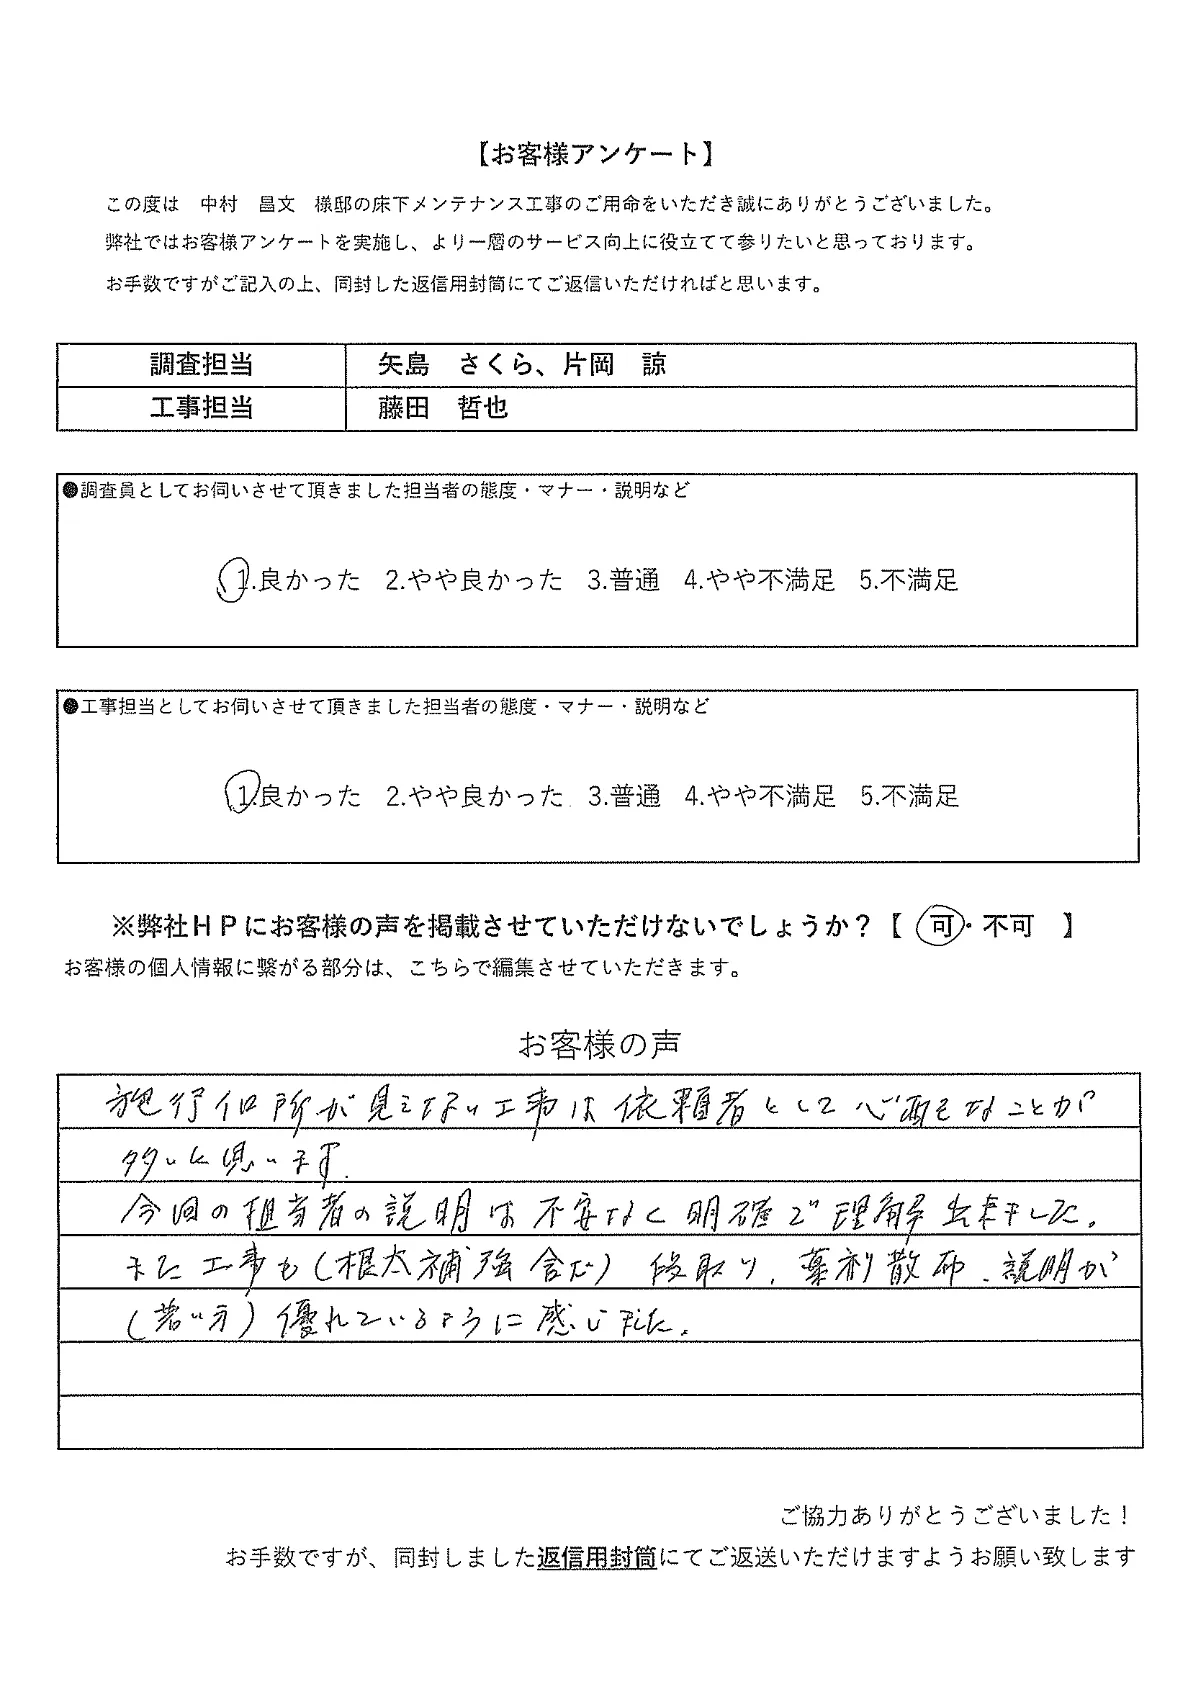 【お客様アンケート】
この度は　中村　昌文　様邸の床下メンテナンス工事のご用命をいただき誠にありがとうございました。
弊社ではお客様アンケートを実施し、より一層のサービス向上に役立てて参りたいと思っております。
お手数ですがご記入の上、同封した返信用封筒にてご返信いただければと思います。
調査担当　矢島　さくら、片岡　諒
工事担当　藤田　哲也
●調査員としてお伺いさせて頂きました担当者の態度・マナー・説明など
1.良かった　2.やや良かった　3.普通　4.やや不満足　5.不満足
●工事担当としてお伺いさせて頂きました担当者の態度・マナー・説明など
1.良かった　2.やや良かった　3.普通　4.やや不満足　5.不満足
※弊社ＨＰにお客様の声を掲載させていただけないでしょうか？【　可・不可　】
お客様の個人情報に繋がる部分は、こちらで編集させていただきます。
お客様の声
施行個所が見えない工事は依頼者として心配なことが
多いと思います。
今回の担当者の説明は不安なく明確で理解出来ました。
また工事も（根太補強含む）段取り、薬剤散布、説明が
（若い方）優れているように感じました。
ご協力ありがとうございました！
お手数ですが、同封しました返信用封筒にてご返送いただけますようお願い致します